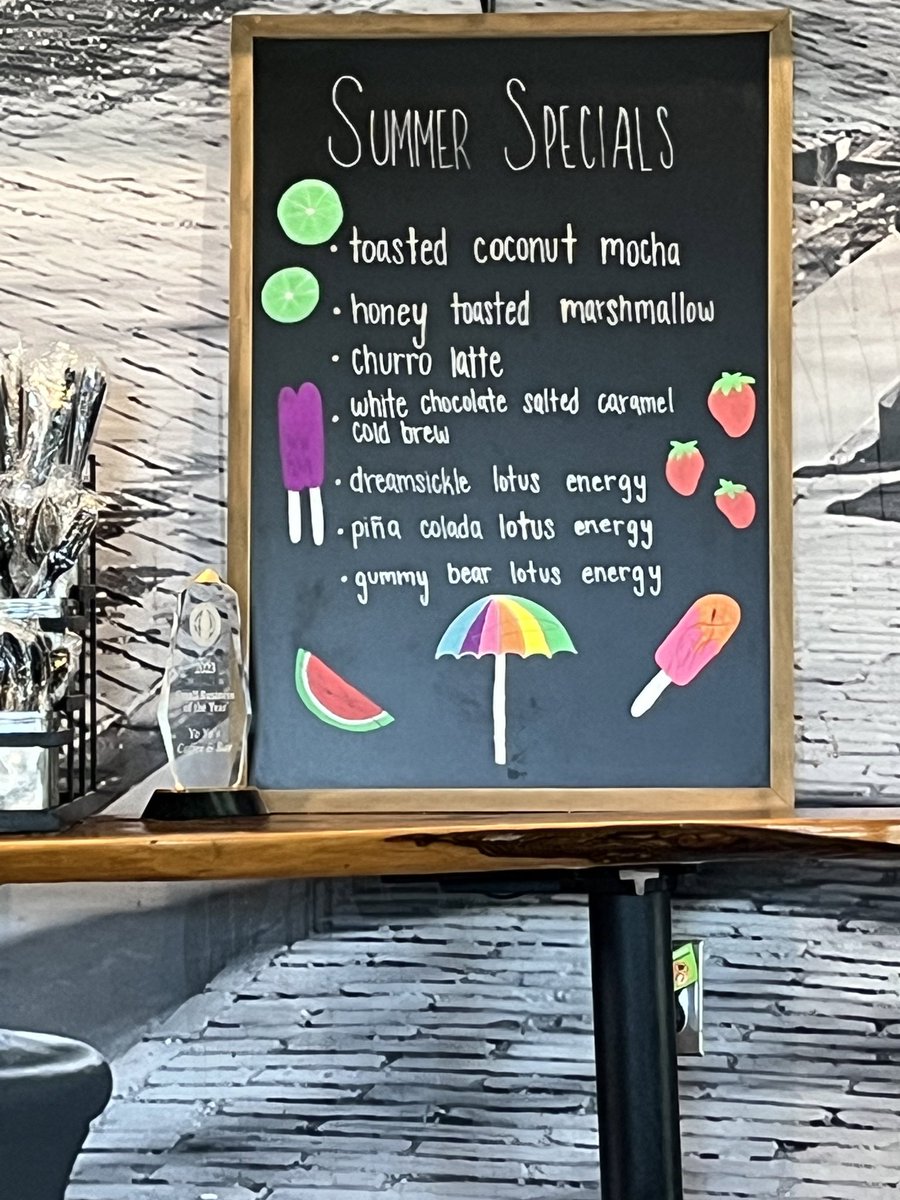 Summer Specials
• toasted coconut mocha
• honey toasted marshmallow
• churro latte
• white chocolate salted caramel
cold brew
• dreamsickle lotus energy
• piña colada lotus energy
• gummy bear lotus energy
Small Business
of the Year
Yo Yo's